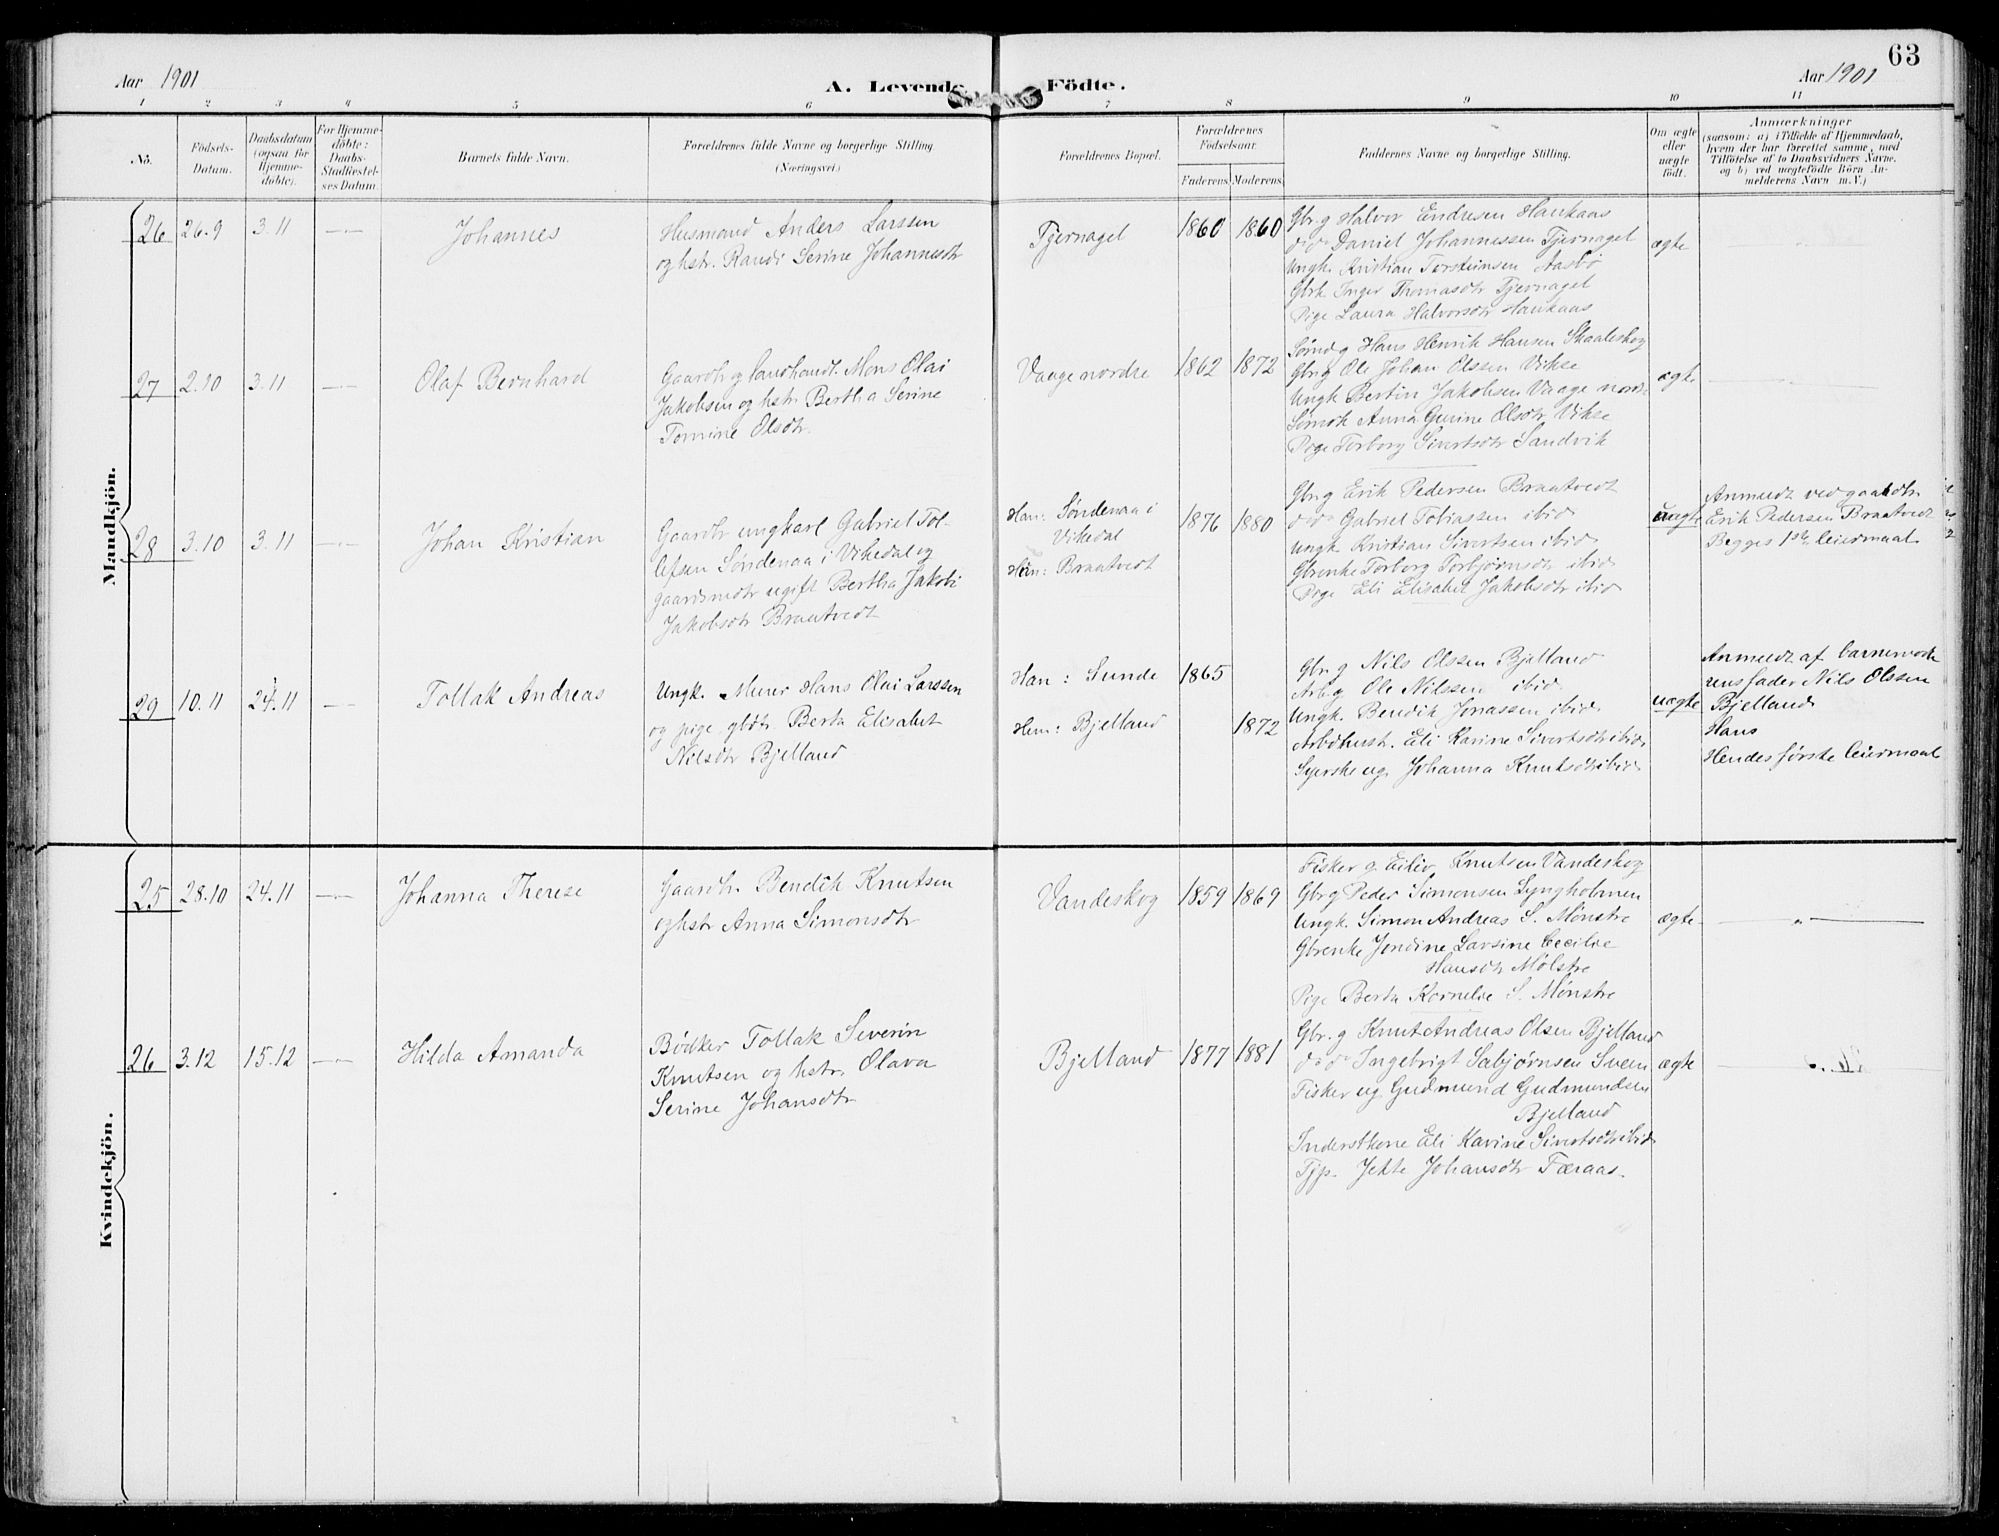 63
Aar 1901
A. Levende Födte.
Aar 1901
1 2 3 4 5 6 7 8 9 10 11
No.
Födsels-
Datum.
Daabsdatum
(ogsaa for
Hjemme-
döbte).
For Hjemme-
döbte:
Daabs-
Stadfæstel-
ses Datum.
Barnets fulde Navn.
Forældrenes fulde Navne og borgerlige Stilling
(Næringsvei.)
Forældrenes Bopæl.
Forældrenes
Födselsaar.
Faderens. Moderens.
Faddernes Navne og borgerlige Stilling.
Om ægte
eller
uægte
født.
Anmærkninger
(saasom: a) i Tilfælde af Hjemmedaab,
hvem der har forrettet samme, med
Tilföielse af to Daabsvidners Navne.
og b) ved uægtefödte Börn An-
melderens Navn m. V.)
Mandkjön.
26 26.9 3.11 Johannes
Husmand Anders Larssen
og hstr. Randi Serine Johannesdtr
Tjernagel 1860 1860
Gbr. g Halvor Endresen Haukaas
do do Daniel Johannessen Tjernagel
Ungk. Kristian Torsteinsen Aasbø
Gbrk Inger Thomasdtr Tjernagel
Pige Laura Halvorsdtr Haukaas
ægte
27 2.10 3.11 Olaf Bernhard
Gaardbr og landhandl. Mons Olai
Jakobsen og hstr Bertha Serine
Tomine Olsdtr.
Vaage nordre 1862 1872
Smd g Hans Henrik Hansen Skaaleskog
Gbr g Ole Johan Olssen Vikse
Ungk Bertin Jakobsen Vaage nord.
Anna Gurine Olsdtr Vikse
Pige Torborg Sivertsdtr Sandvik
ægte
28 3.10 3.11 Johan Kristian
Gaardbr ungkarl Gabriel Tol-
lefsen Søndenaa i Vikedal og
gaardmdtr ugift Bertha Jakobi
Jakobsdtr Braatvedt
Han: Søndenaa i
Vikedal
Hun: Braatvedt
1876 1880
Gbr g Erik Pedersen Braatvedt
do do Gabriel Tobiassen ibid
Ungk Kristian Sivertsen ibid
Gbrenke Torborg Torbjørnsdtr ibid
Pige Eli Elisabet Jakobsdtr ibid
uægte
Anmeldt ved gaardbr.
Erik Pedersen Braatvedt
Begges 1ste leiermaal
29 10.11 24.11 Tollak Andreas
Ungk. Murer Hans Olai Larssen
og pige gbdtr Berta Elisabet
Nilsdtr Bjelland
Han: Sunde
Hun: Bjelland
1865 1872
Gbr g Nils Olssen Bjelland
Arb g Ole Nilssen ibid
Ungk. Bendik Jonassen ibid
Arbdhust. Eli Karine Sivertsdtr ibid.
Syerske ug. Johanna Knutsdtr ibid
uægte
Anmeldt af barnemode
rens fader Nils Olssen
Bjelland
Hans
Hendes første leiermaal
Kvindekjön.
25 28.10 24.11 Johanna Therese
Gaardbr Bendik Knutsen
og hstr Anna Simonsdtr
Vandeskog 1859 1869
Fisker g. Eiliv Knutsen Vandeskog
Gbr g Peder Simonsen Lyngholmen
Ungk. Simon Andreas S. Mønstre
Gbrenke Jondine Larsine Cecilie
Hansdtr Mølstre
Pige Berta Kornelie S. Mønstre
ægte
26 3.12 15.12 Hilda Amanda
Bødker Tollak Severin
Knutsen og hstr. Olava
Serine Johansdtr
Bjelland 1877 1881
Gbr. g Knut Andreas Olsen Bjelland
do do Ingebrigt Sabjørnsen Sveen
Fisker ug Gudmund Gudmundsen
Bjelland
Inderstkone Eli Karine Sivertsdtr ibid
Tjp. Jekte Johansdtr Færaas.
ægte